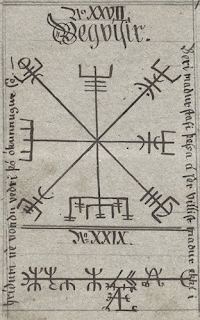 No. XXVII.
Vegvísir.
Beri madur stafi þessa á sér villist madur ekki i
hridum né vondu vedri þó ókunnugur sé –
No. XXIX.